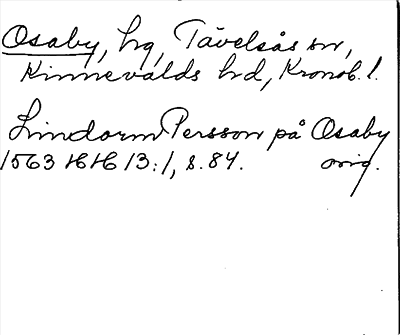 Osaby, hg, Tävelsås sn,
Kinnevalds hd, Kronob. l.
Lindorm Persson på Osaby
1563 HH 13:1, s. 84. orig.